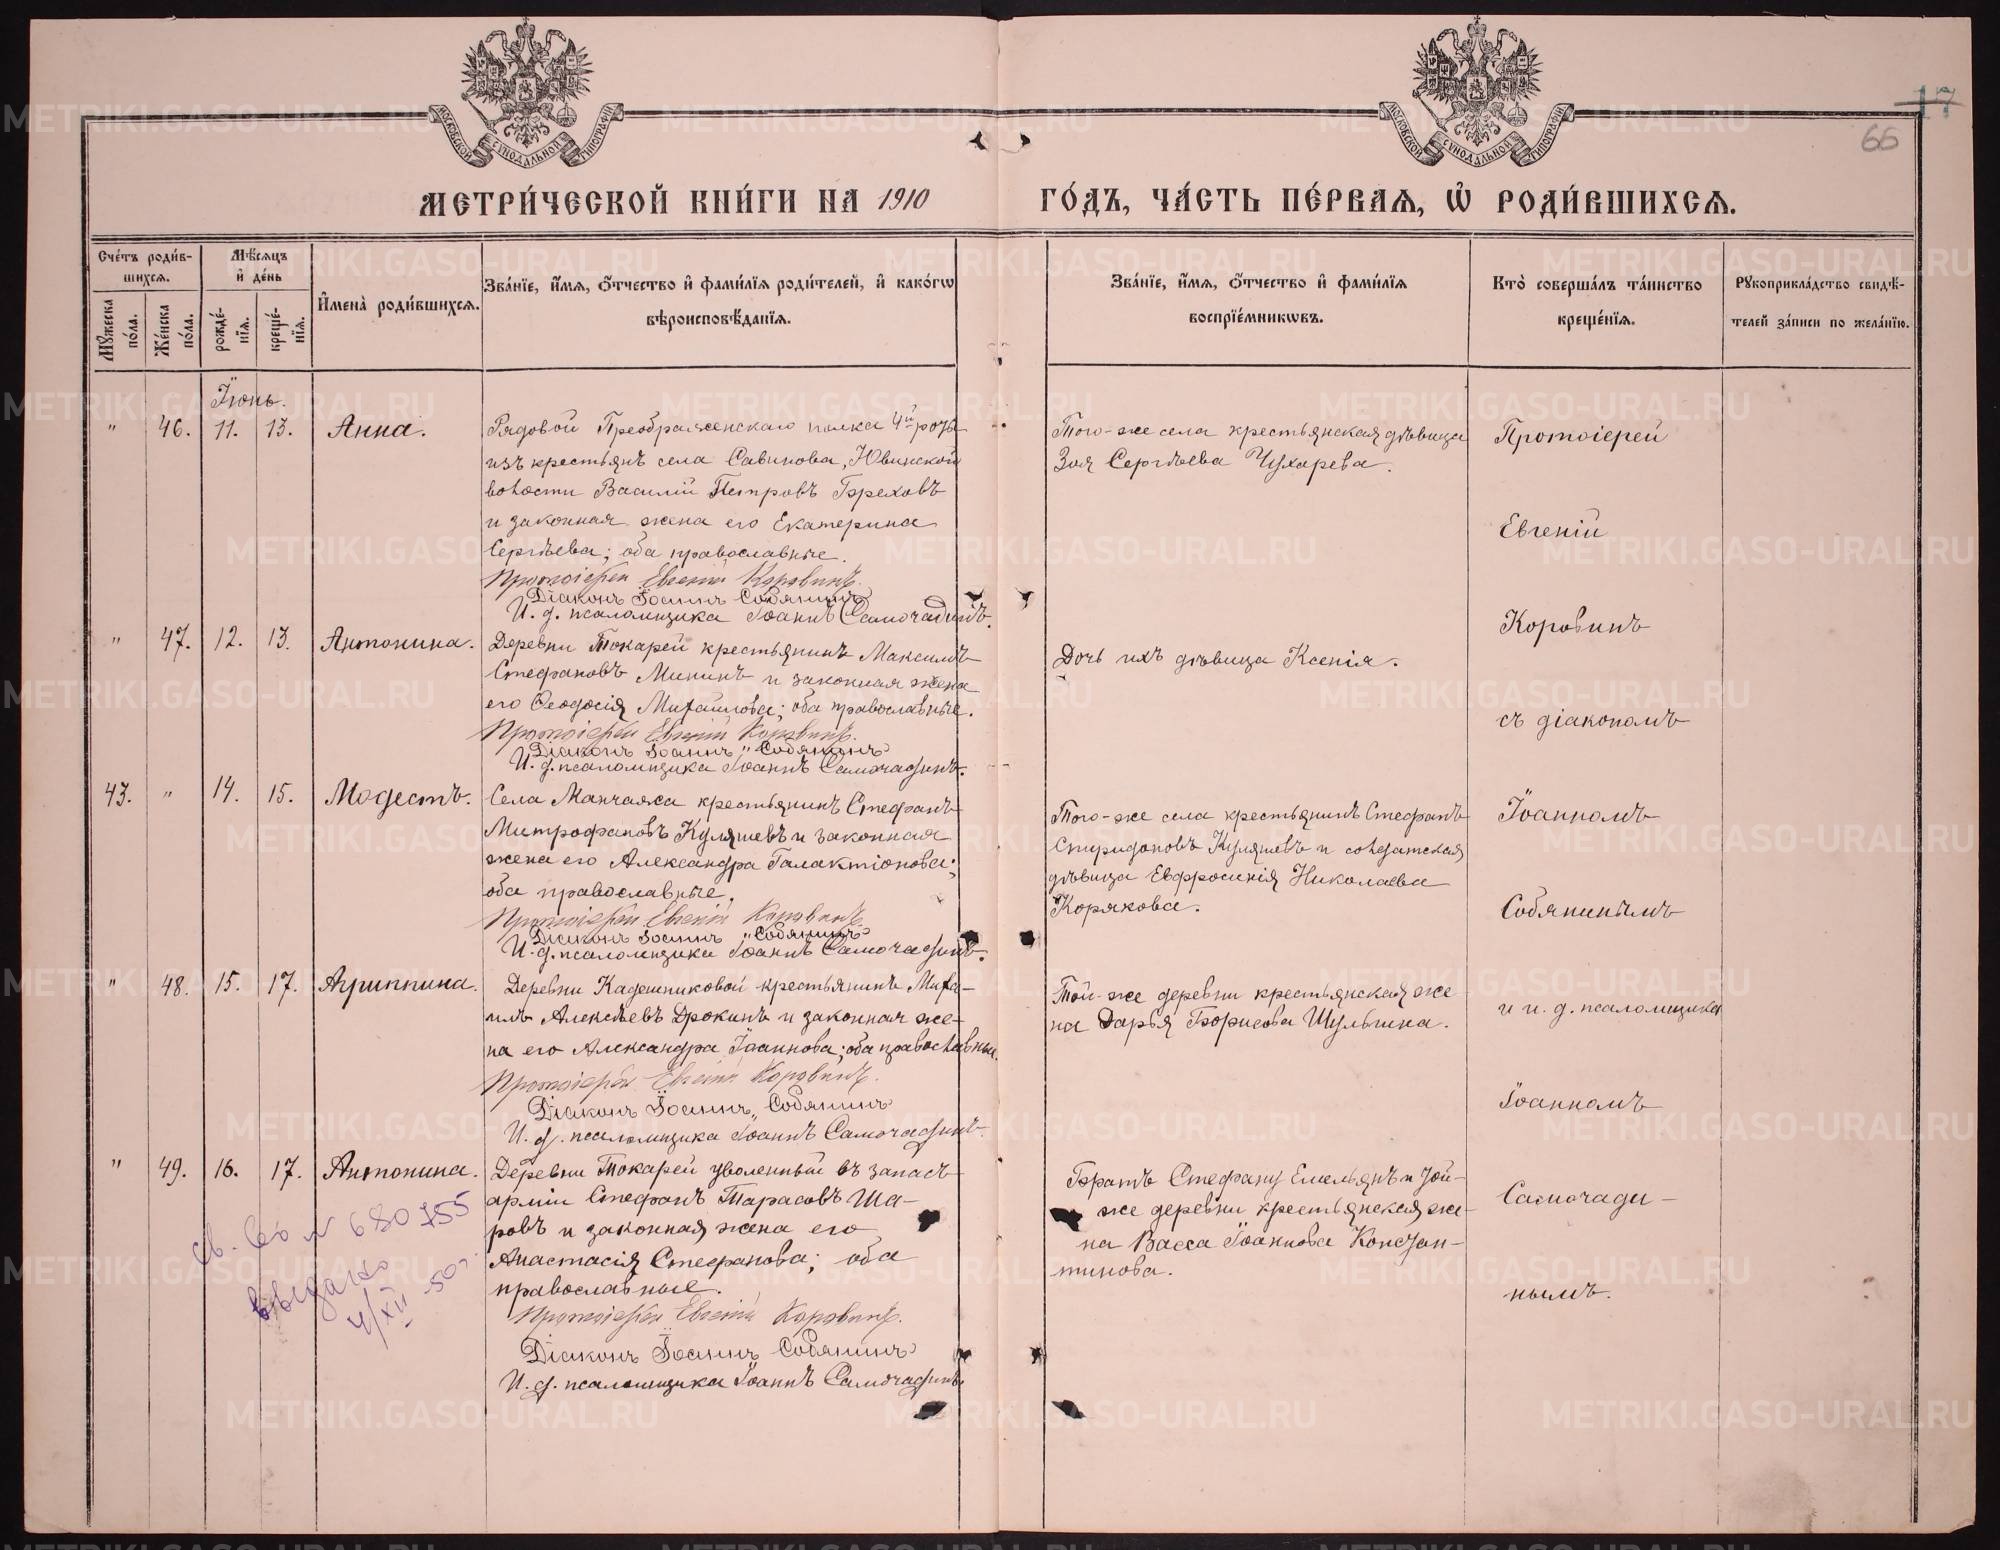 МОСКОВСКОЙ СѴНОДАЛЬНОЙ ТИПОГРАФІИ
МОСКОВСКОЙ СѴНОДАЛЬНОЙ ТИПОГРАФІИ
17
66
МЕТРИ́ЧЕСКОЙ КНИ́ГИ НА 1910 ГО́ДЪ, ЧА́СТЬ ПЕ́РВАѦ, Ѡ҆ РОДИ́ВШИХСѦ.
Сче́тъ роди́в-
шихсѧ.
Мꙋжеска по́ла.
Же́нска по́ла.
Мѣ́сѧцъ
и҆ де́нь
рожде́-
нїѧ.
креще́-
нїѧ.
И҆мена̀ роди́вшихсѧ.
Зва́нїе, и҆́мѧ, ѻ҆́тчество и҆ фами́лїѧ роди́телей, и҆ како́гѡ
вѣроисповѣ́данїѧ.
Зва́нїе, и҆́мѧ, ѻ҆́тчество и҆ фами́лїѧ
воспрїе́мникѡвъ.
Кто̀ соверша́лъ та́инство
креще́нїѧ.
Рꙋкоприкла́дство свидѣ́-
телей за́писи по жела́нїю.
Іюнь.
" 46. 11. 13. Анна.
Рядовой Преображенскаго полка 4й роты
изъ крестьянъ села Савинова, Ювинской
волости Василій Петровъ Грековъ
и законная жена его Екатерина
Сергѣева; оба православные.
Протоіерей Евгеній Коровинъ.
Діаконъ Іоаннъ Собянинъ
И. д. псаломщика Іоаннъ Самочадинъ.
Того-же села крестьянская дѣвица
Зоя Сергѣева Чухарева.
" 47. 12. 13. Антонина.
Деревни Токарей крестьянинъ Максимъ
Стефановъ Мининъ и законная жена
его Ѳеодосія Михаилова; оба православные.
Протоіерей Евгеній Коровинъ.
Діаконъ Іоаннъ Собянинъ
И. д. псаломщика Іоаннъ Самочадинъ.
Дочь ихъ дѣвица Ксенія.
43. " 14. 15. Модестъ.
Села Манчажа крестьянинъ Стефанъ
Митрофановъ Куляшевъ и законная
жена его Александра Галактіонова;
оба православные.
Протоіерей Евгеній Коровинъ.
Діаконъ Іоаннъ Собянинъ
И. д. псаломщика Іоаннъ Самочадинъ.
Того-же села крестьянинъ Стефанъ
Спиридоновъ Куляшевъ и солдатская
дѣвица Евфросинія Николаева
Корякова.
" 48. 15. 17. Агриппина.
Деревни Кадешниковой крестьянинъ Миха-
илъ Алексѣевъ Дрокинъ и законная же-
на его Александра Іоаннова; оба православные.
Протоіерей Евгеній Коровинъ.
Діаконъ Іоаннъ Собянинъ
И. д. псаломщика Іоаннъ Самочадинъ.
Той-же деревни крестьянская же-
на Дарья Борисова Шульгина.
" 49. 16. 17. Антонина.
Деревни Токарей уволенный въ запасъ
арміи Стефанъ Тарасовъ Ша-
ровъ и законная жена его
Анастасія Стефанова; оба
православные.
Протоіерей Евгеній Коровинъ.
Діаконъ Іоаннъ Собянинъ
И. д. псаломщика Іоаннъ Самочадинъ
Братъ Стефану Емельянъ и той-
же деревни крестьянская же-
на Васса Іоаннова Констан-
тинова.
Протоіерей
Евгеній
Коровинъ
съ діакономъ
Іоанномъ
Собянинымъ
и и. д. псаломщика
Іоанномъ
Самочади-
нымъ.
св. № 680755
выдано
4/XII-50
METRIKI.GASO-URAL.RU